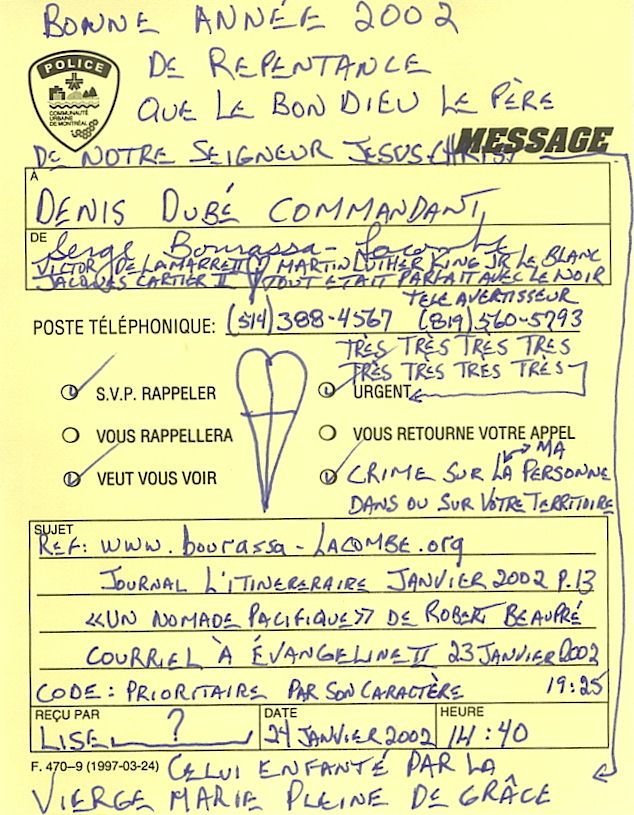 BONNE ANNÉE 2002
DE REPENTANCE
QUE LE BON DIEU LE PÈRE
DE NOTRE SEIGNEUR JESUS-CHRIST
POLICE
COMMUNAUTÉ
URBAINE
DE MONTRÉAL
MESSAGE
À
DENIS DUBÉ COMMANDANT,
DE
Serge Bourassa-Lacombe
VICTOR DELAMARRE II MARTIN LUTHER KING JR LE BLANC
JACQUES CARTIER II TOUT ETAIT PARFAIT AVEC LE NOIR
TELE AVERTISSEUR
POSTE TÉLÉPHONIQUE: (514) 388-4567 (819) 560-5793
TRÈS TRÈS TRÈS TRES
TRÈS TRES TRES TRÈS
S.V.P. RAPPELER
URGENT
VOUS RAPPELLERA
VOUS RETOURNE VOTRE APPEL
VEUT VOUS VOIR
MA
CRIME SUR LA PERSONNE
DANS OU SUR VOTRE TERRITOIRE
SUJET
REF: www.bourassa-LACOMBE.org
JOURNAL L'ITINERERAIRE JANVIER 2002 P.13
«UN NOMADE PACIFIQUE» DE ROBERT BEAUPRÉ
COURRIEL À ÉVANGELINE II 23 JANVIER 2002
CODE: PRIORITAIRE PAR SON CARACTÈRE 19:25
REÇU PAR
LISE ?
DATE
24 JANVIER 2002
HEURE
14:40
F. 470-9 (1997-03-24)
CELUI ENFANTÉ PAR LA
VIERGE MARIE PLEINE DE GRÂCE